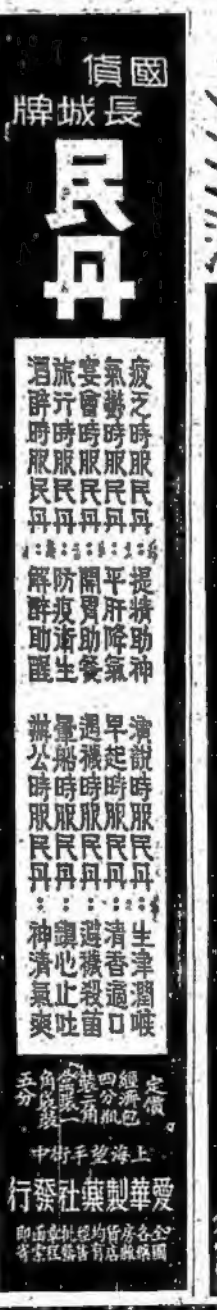 國貨
長城牌
民丹
疲乏時服民丹：提精助神
氣鬱時服民丹：平肝降氣
宴會時服民丹：開胃助餐
旅行時服民丹：防疫衛生
酒醉時服民丹：解醉助醒
演說時服民丹：生津潤喉
早起時服民丹：清香適口
遇穢時服民丹：避穢殺菌
暈船時服民丹：鎮心止吐
辦公時服民丹：神清氣爽
定價
經濟包
四分瓶
裝二角
當裝一
角袋裝
五分
上海望平街中
愛華製藥社發行
全國各
藥房
貨店均有經售批發章程函索即寄